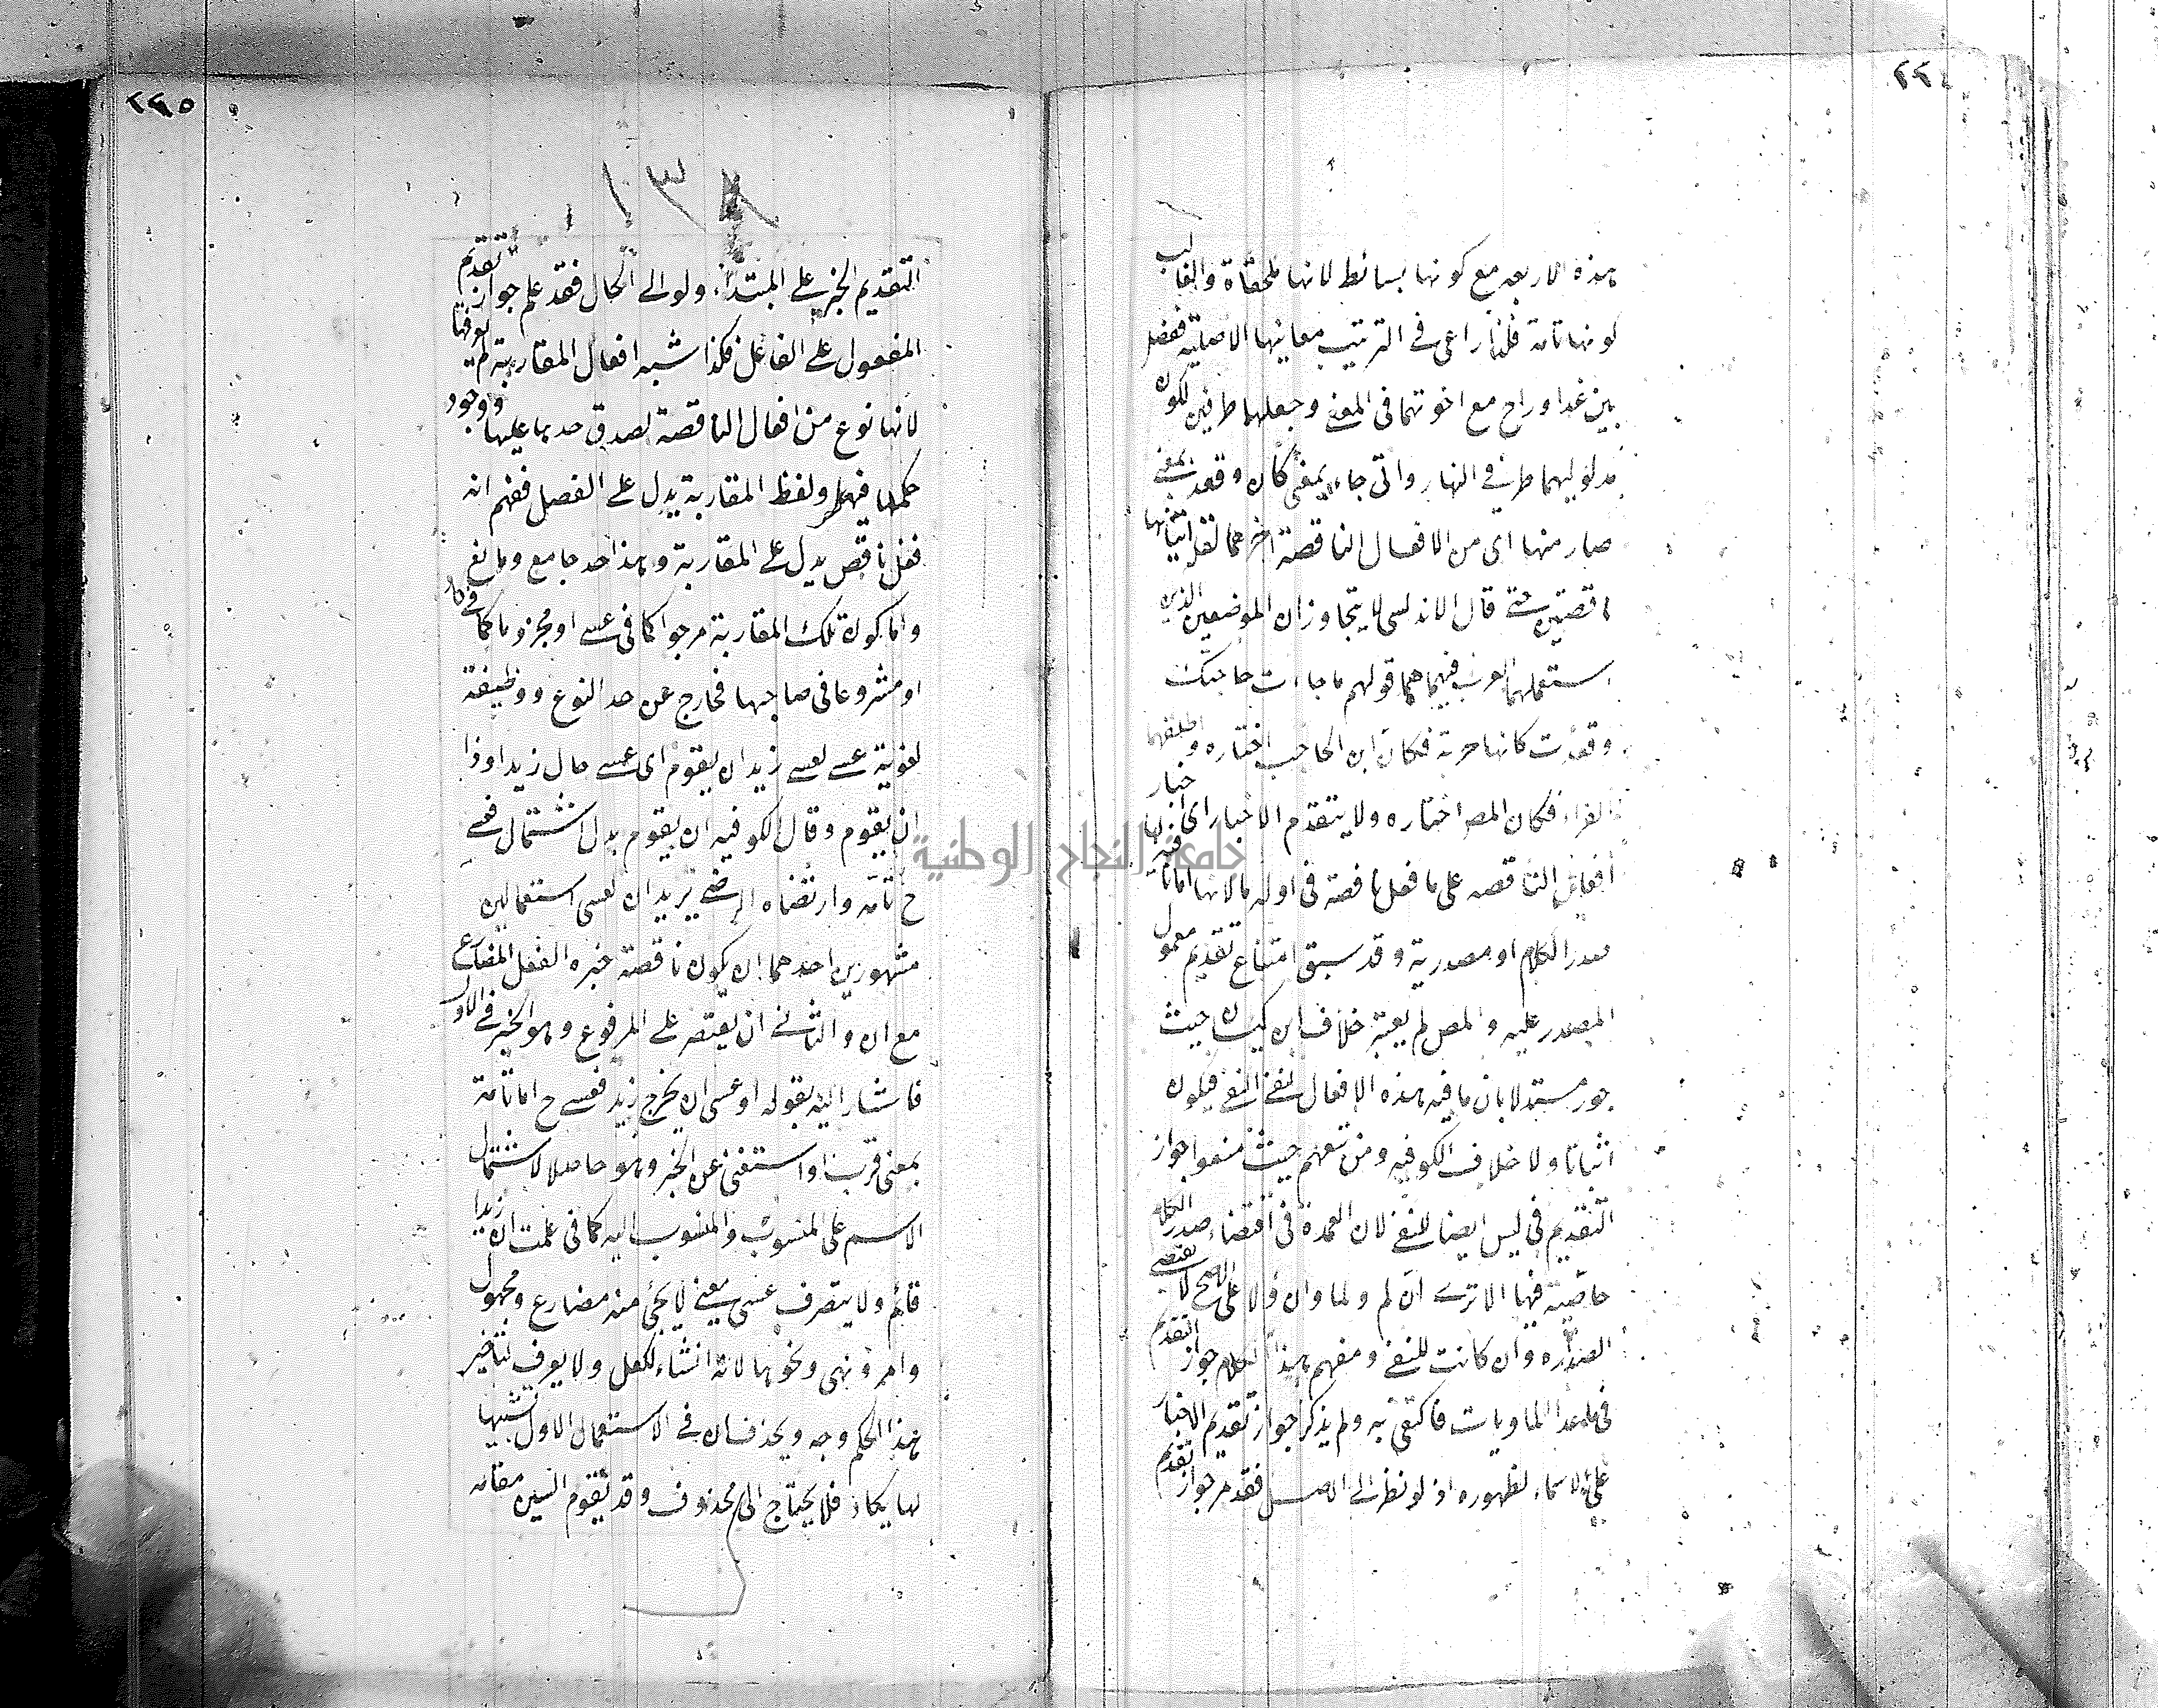 ٢٢٤
هذه الاربعه مع كونها بسائط لانها ملحقاة والغالب
كونها تامة فلهذا راعى فى الترتيب معانيها الاصليه ففصل
بين غدا وراح مع اخوتهما فى المعنى وجعلهما طرفين لكون
مدلوليهما طرفى النهار واتى جاء بمعنى كان وقعد بمعنى
صار منها اى من الافعال الناقصة اخرهما لقلة اتيانهما
ناقصتين حتى قال الاندلسى لا يتجاوزان الموضعين الذين
استعملهما العرب فيهما هما قولهم ما جاءت حاجتك
وقعدت كانها حربة فكان ابن الحاجب اختاره واطلقهما
الفراء فكان المصر اختاره ولا يتقدم الاخبار اى اخبار
افعال الناقصه على ما فعل ناقصة فى اوله ما لانها اما نافية لها
صدر الكلام او مصدرية وقد سبق امتناع تقديم معمول
المصدر عليه والمص لم يعتبر خلاف ابن كيسان حيث
جوز مستدلا بان ما فيه هذه الافعال لنفى النفى فيكون
اثباتا ولا خلاف الكوفيه ومن تبعهم حيث منعوا جواز
التقديم فى ليس ايضا للنفى لان العمدة فى اقتضاء صدر الكلام
خاصية فيها الا ترى ان لم ولما وان ولا على الاصح لا يقتضى
الصدارة وان كانت للنفى ومفهم هذا الكلام جواز التقديم
فى ما عدا الماويات فاكتفى به ولم يذكر جواز تقديم الاخبار
على الاسماء لظهوره اذ لو نظر الى الاصل فقد مر جواز تقديم
٢٢٥
١٣٨
التقديم الخبر على المبتداء ولو الى الحال فقد علم جواز تقديم
المفعول على الفاعل فكذا شبه افعال المقاربة لم يعرفها
لانها نوع من افعال الناقصة لصدق حدها عليها ووجود
حكمها فيها ولفظ المقاربة يدل على الفصل ففهم انه
فعل ناقص يدل على المقاربة وهذا حد جامع ومانع
واما كون تلك المقاربة مرجوا كما فى عسى او مجزوما كما فى كاد
او مشروعا فى صاحبها فخارج عن حد النوع ووظيفة
لغوية عسى لعسى زيد ان يقوم اى عسى حال زيد او ذا
ان يقوم وقال الكوفيه ان يقوم بدل اشتمال فهى
ح تامة وارتضاه الرضى يريد ان لعسى استعمالين
مشهورين احدهما ان يكون ناقصة خبره الفعل المضارع
مع ان والثانى ان يقتصر على المرفوع وهو الخبر فى الاول
فاشار اليه بقوله او عسى ان يخرج زيد فعسى ح اما تامة
بمعنى قرب او استغنى عن الخبر وهو حاصل لاشتمال
الاسم على المنسوب والمنسوب اليه كما فى علمت ان زيدا
قائم ولا يتصرف عسى بمعنى لا يجئ منه مضارع ومجهول
وامر ونهى ونحوها لانه انشاء لكعل ولا يعرف لتاخير
هذا الحكم وجه ويحذف ان فى الاستعمال الاول تشبيها
لها بكاد فلا يحتاج الى محذوف وقد تقوم السين مقامه
جامعة النجاح الوطنية